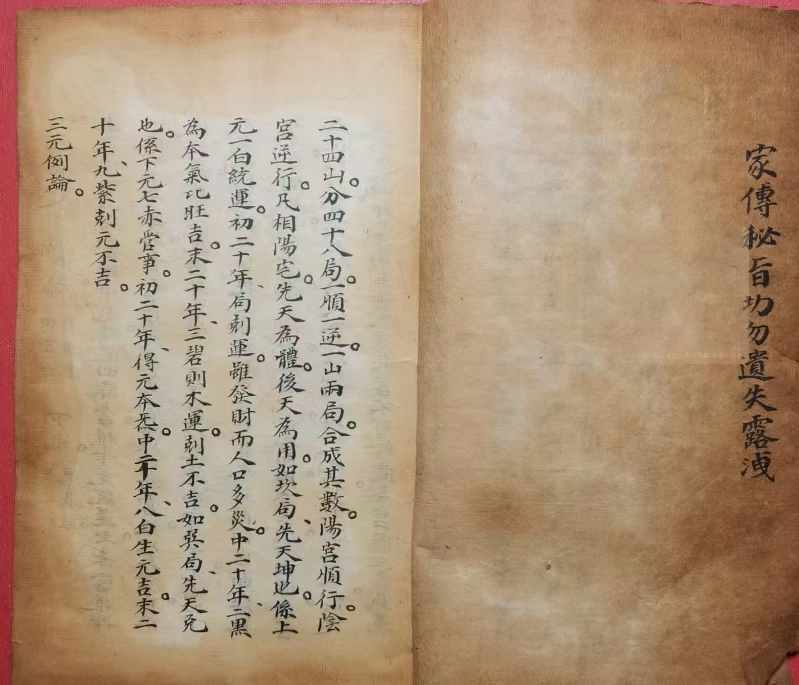 家傳秘旨切勿遺失露洩
二十四山。分四十八局。一順一逆。一山兩局。合成其數。陽宮順行。陰
宮逆行。凡相陽宅。先天為體。後天為用。如坎局、先天坤也。係上
元一白統運。初二十年、局剋運。雖發財而人口多災。中二十年、二黑
為本氣比旺吉。末二十年、三碧則木運。剋土不吉。如巽局、先天兌
也。係下元七赤管事。初二十年、得元本炁。中二十年、八白生元吉。末二
十年、九紫剋元不吉。
三元例論。